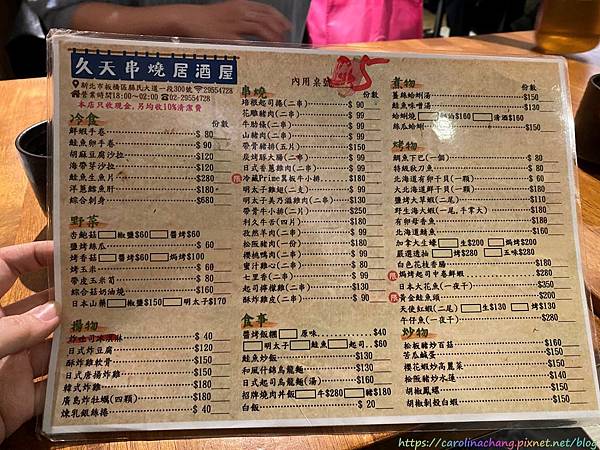 久天串燒居酒屋
新北市板橋區縣民大道一段300號 29554728
營業時間18:00～02:00 02-29554728
本店只收現金,另均收10%清潔費
內用桌號 45
冷食 份數
鮮蝦手卷 $ 80
鮭魚卵手卷 $ 90
胡麻豆腐沙拉 $120
海帶芽沙拉 $120
鮭魚生魚片 $280
洋蔥鱈魚肝 $180
綜合刺身 $680
野菜
杏鮑菇 椒鹽$60 醬烤$60
鹽烤絲瓜 $ 60
烤香菇 醬烤$60 焗烤$100
烤玉米 $ 60
帶皮玉米筍 $ 80
綜合菇奶油燒 $160
日本山藥 椒鹽$150 明太子$170
揚物
炸吐司冰淇淋 $ 40
日式炸豆腐 $ 80
酥炸雞軟骨 $150
日式唐揚炸雞 $150
韓式炸雞 $180
廣島炸牡蠣(四顆) $180
煉乳銀絲捲 $ 40
串燒 份數
培根起司捲(二串) $ 90
花雕豬肉(二串) $ 90
牛培根(二串) $ 90
山豬肉(二串) $ 90
帶骨豬排(五片) $150
炭烤豚大腸(二串) $ 90
日式香蔥雞肉(二串) $ 90
冷藏Prime翼板牛小排 $180
明太子雞翅(二支) $ 90
明太子美乃滋雞肉(二串) $130
帶骨牛小排(二片) $250
利久牛舌(四片) $180
孜然羊肉(二串) $ 90
松阪豬肉(一份) $ 90
櫻桃鴨肉(二串) $ 90
蜜汁雞心(二串) $ 80
七里香(二串) $ 99
起司檸檬雞(二串) $130
酥炸雞皮(二串) $ 90
食事
醬烤飯糰 原味 $40
明太子 鮭魚 起司 $60
鮭魚炒飯 $130
和風什錦烏龍麵 $130
日式起司烏龍麵(湯) $160
招牌燒肉丼飯 牛$280 豬$180
白飯 $ 20
煮物 份數
薑絲蛤蜊湯 $150
鮭魚味噌湯 $130
蛤蜊燒 奶油$160 清酒$160
絲瓜蛤蜊 $150
烤物
鯛魚下巴(一個) $ 80
特級秋刀魚 $ 80
北海道有卵干貝(一顆) $ 60
大北海道鮮干貝(一顆) $180
鹽烤大草蝦(二尾) $110
野生海大蝦(一尾,手掌大) $180
有卵母香魚 $180
北海道鮭魚 $160
加拿大生蠔 生$200 焗烤$200
嚴選透抽 烤$280 五味$280
白色花枝香腸 $180
焗烤起司中卷鮮蝦 $280
日本大花魚(一夜干) $350
黃金鮭魚頭 $200
天使紅蝦(二尾) 生$130 烤$130
午仔魚(一夜干) $280
炒物
松板豬炒百菇 $160
苦瓜鹹蛋 $150
櫻花蝦炒高麗菜 $150
松阪豬炒水蓮 $140
胡椒鳳螺 $150
胡椒製殼白蝦 $150
https://carolinachang.pixnet.net/blog